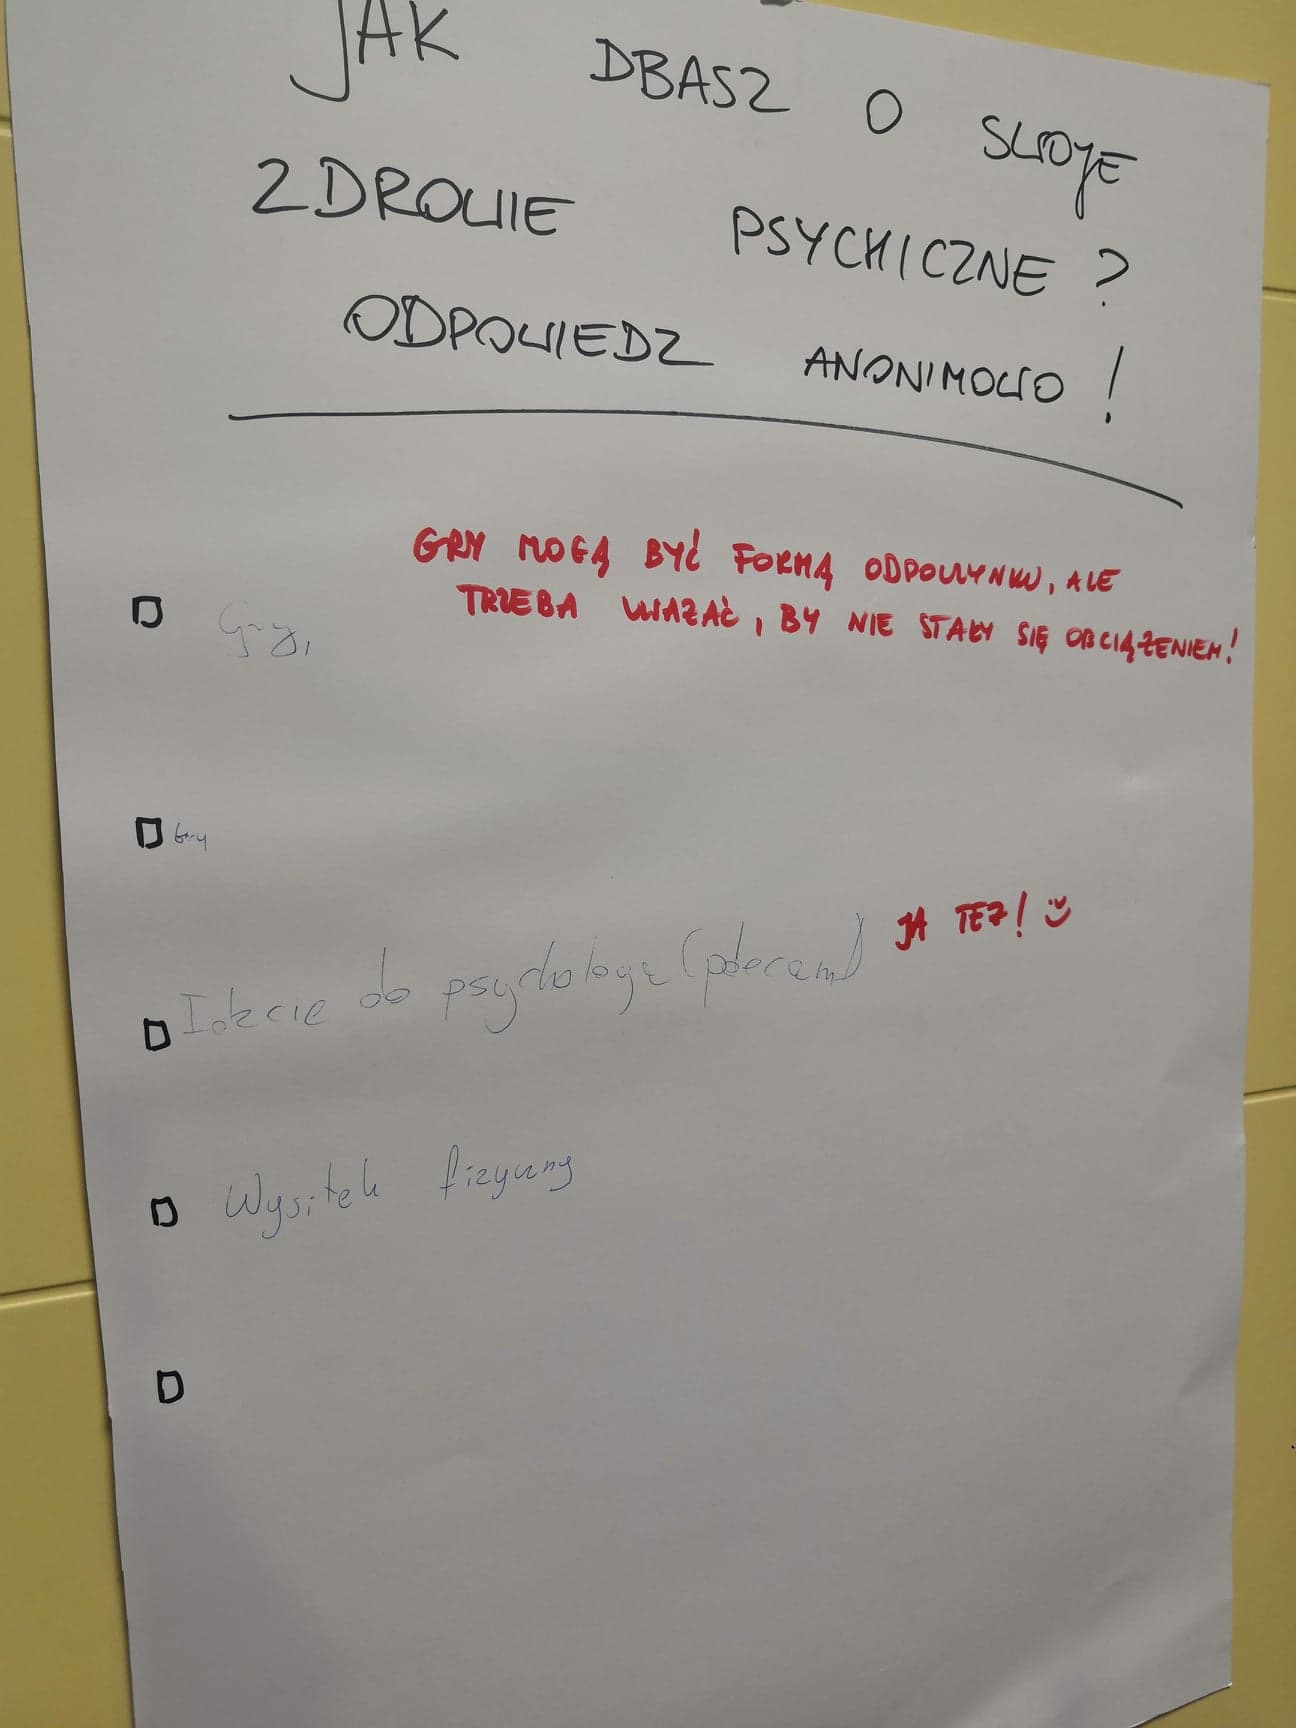 JAK DBASZ O SWOJE
ZDROWIE PSYCHICZNE?
ODPOWIEDZ ANONIMOWO!
GRY MOGĄ BYĆ FORMĄ ODPOWYNKU, ALE
TRZEBA UWAŻAĆ, BY NIE STAŁY SIĘ OBCIĄŻENIEM!
Gry,
Gry
JA TEŻ!
Idźcie do psychologa (polecam)
Wysiłek fizyczny